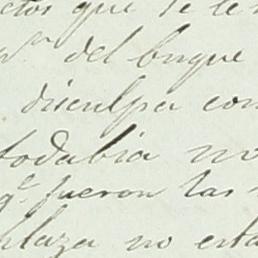 que se le
del buque
disculpa con
todabia no
q.e fueron las
plaza no esta